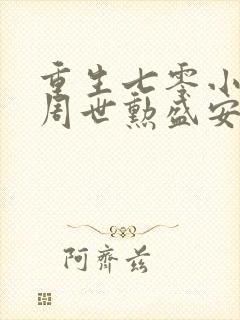 重生七零小
周世勲盛安
阿齊茲